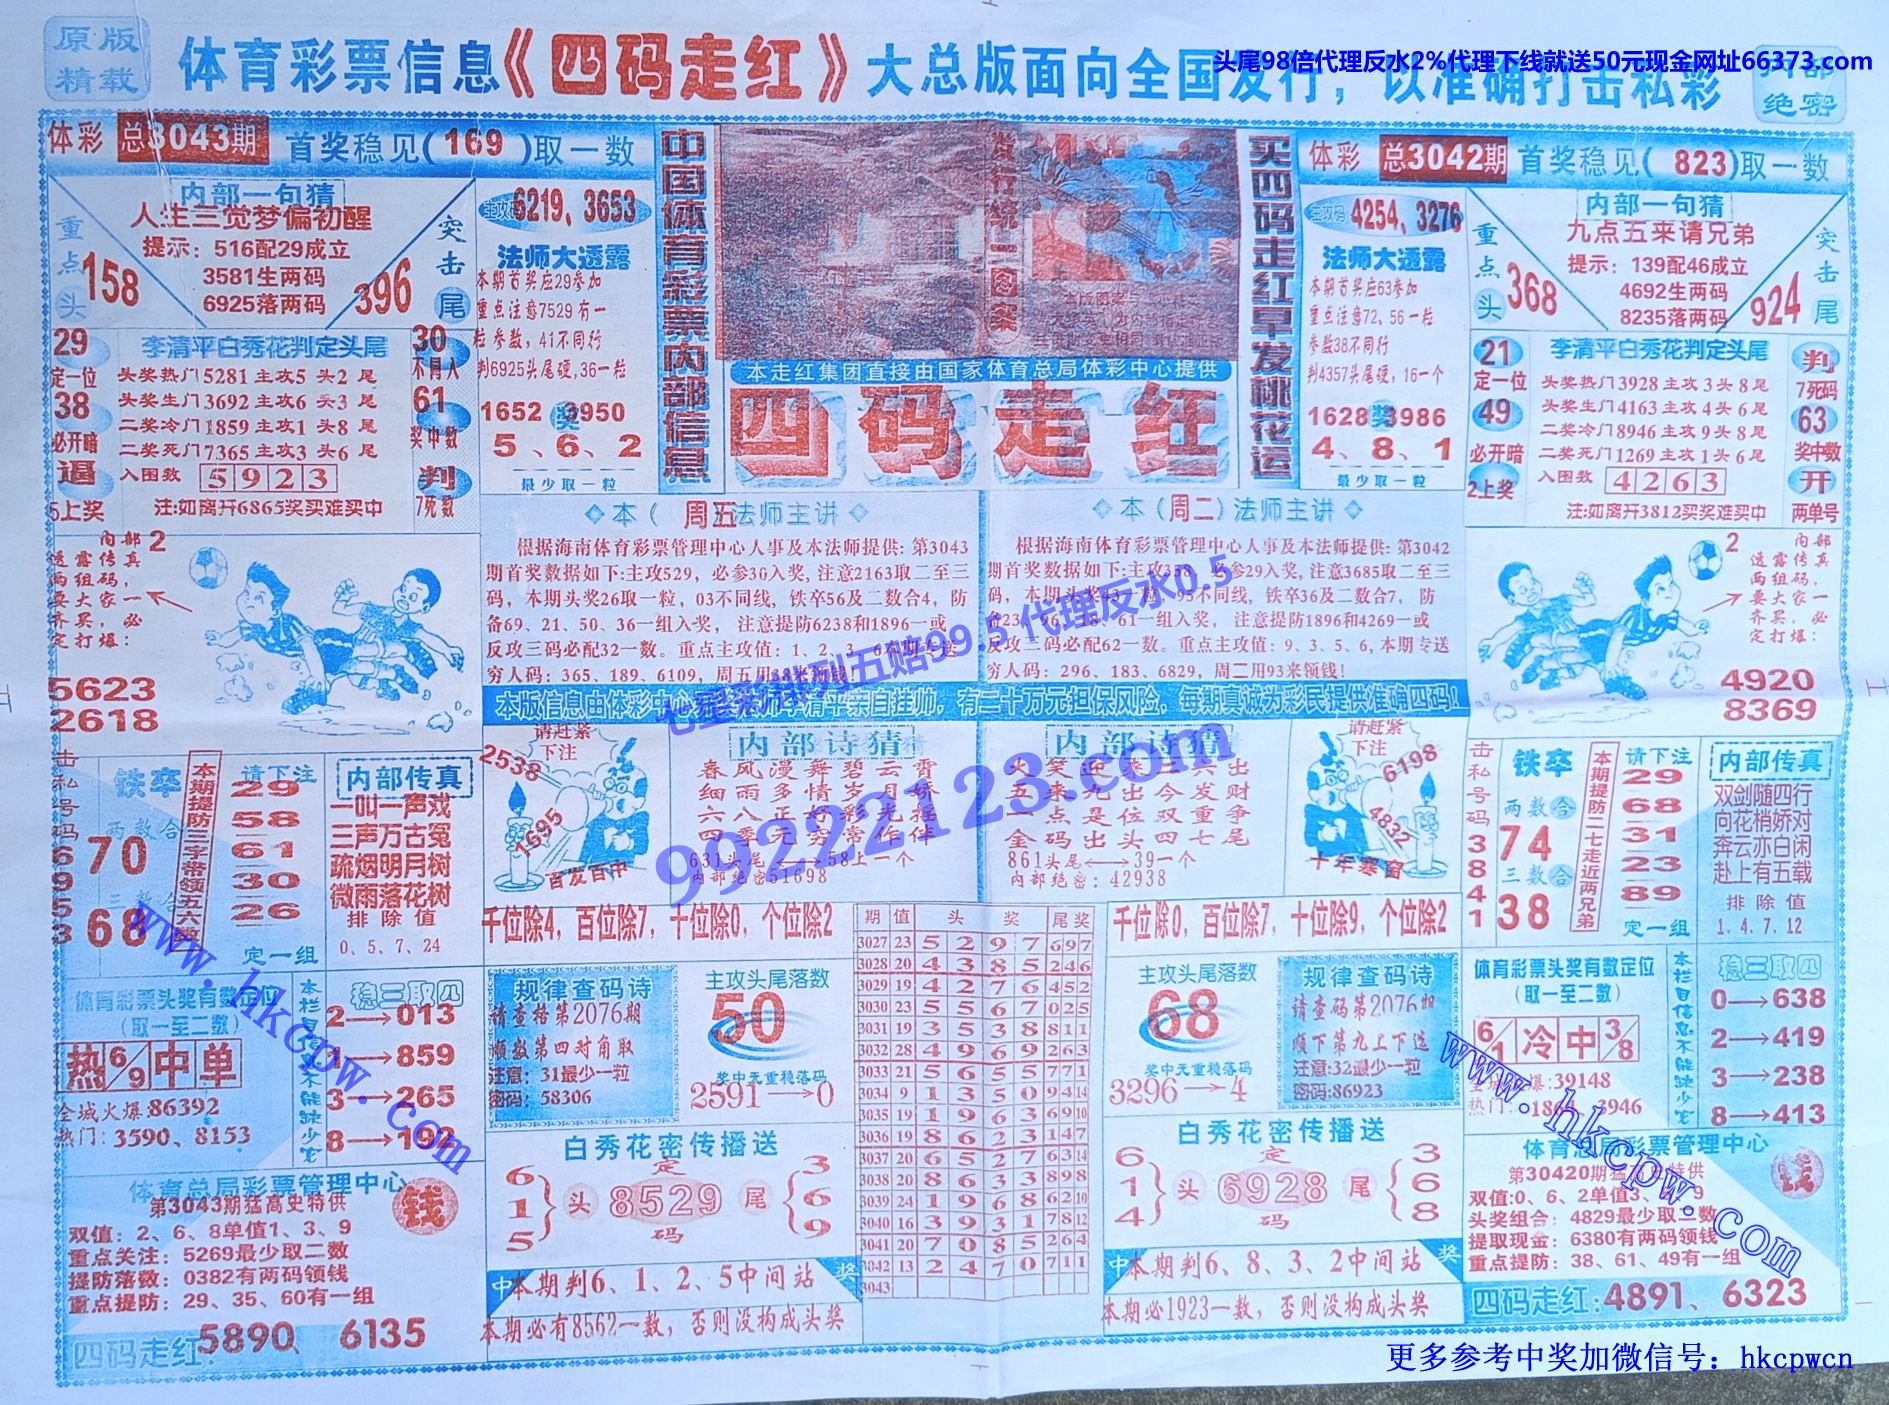 原版
精载
体育彩票信息《四码走红》大总版面向全国发行，以准确打击私彩
头尾98倍代理反水2%代理下线就送50元现金网址66373.com
绝密
体彩 总3043期 首奖稳见(169)取一数
内部一句猜
人生三觉梦偏初醒
提示：516配29成立
3581生两码
6925落两码
重点头
158
396
突击尾
主攻码 6219、3653
法师大透露
本期首奖应29参加
重点注意7529有一
粒参数，41不同行
判6925头尾硬,36一粒
1652 奖 3950
5、6、2
最少取一粒
29
定一位
38
必开暗
逼
5上奖
李清平白秀花判定头尾
头奖热门5281主攻5头2尾
头奖生门3692主攻6头3尾
二奖冷门1859主攻1头8尾
二奖死门7365主攻3头6尾
入围数 5923
注:如离开6865奖买难买中
30
不同人
61
奖中数
判
7死数
中国体育彩票内部信息
发行统一图案
本走红集团直接由国家体育总局体彩中心提供
四码走红
买四码走红早发桃花运
体彩 总3042期 首奖稳见(823)取一数
主攻码 4254,3276
法师大透露
本期首奖应63参加
重点注意72,56一粒
参数38不同行
判4357头尾硬，16一个
1628 奖 3986
4、8、1
最少取一粒
内部一句猜
九点五来请兄弟
提示：139配46成立
4692生两码
8235落两码
重点头
368
924
突击尾
21
定一位
49
必开暗
2上奖
李清平白秀花判定头尾
头奖热门3928主攻3头8尾
头奖生门4163主攻4头6尾
二奖冷门8946主攻9头8尾
二奖死门1269主攻1头6尾
入围数 4263
注:如离开3812买奖难买中
判
7死码
63
奖中数
开
两单号
内部2
透露传真
两组码，
要大家一
齐买，必
定打爆：
5623
2618
本（周五）法师主讲
根据海南体育彩票管理中心人事及本法师提供：第3043
期首奖数据如下:主攻529，必参30入奖,注意2163取二至三
码，本期头奖26取一粒，03不同线，铁卒56及二数合4，防
备69、21、50、36一组入奖， 注意提防6238和1896一或
反攻三码必配32一数。重点主攻值：1、2、3、6本期专送
穷人码：365、189、6109，周五用38来领钱！
本（周二）法师主讲
根据海南体育彩票管理中心人事及本法师提供：第3042
七星彩排列五赔99.5 代理反水0.5
99222123.com
穷人码：296、183、6829，周二用93来领钱！
2内部
透露传真
两组码，
要大家一
齐买，必
定打爆：
4920
8369
击私号码6953
铁卒
两数合
70
三数合
68
本期提防三字带领五六数
请下注
29
58
61
30
26
定一组
内部传真
一叫一声戏
三声万古冤
疏烟明月树
微雨落花树
排除值
0、5、7、24
请赶紧下注
2538
1695
百发百中
内部诗猜
春风漫舞碧云霄
细雨多情岁月娇
六八正好彩光程
四季元穷常作伴
631头尾⟷58上一个
内部绝密51698
内部诗猜
861头尾⟷39一个
内部绝密：42938
请赶紧下注
6198
4832
十年寒窗
击私号码3841
铁卒
两数合
74
三数合
38
本期提防二七走近两兄弟
请下注
29
68
31
23
89
定一组
内部传真
双剑随四行
向花梢娇对
奔云亦白闲
赴上有五载
排除值
1.4.7.12
千位除4，百位除7，十位除0，个位除2
千位除0，百位除7，十位除9，个位除2
规律查码诗
请查格第2076期
顺数第四对角取
注意：31最少一粒
密码：58306
主攻头尾落数
50
奖中无重稳落码
2591→0
期 值 头 奖 尾奖
3027 23 5 2 9 7 697
3028 20 4 3 8 5 246
3029 19 4 2 7 6 452
3030 23 5 5 6 7 025
3031 19 3 5 3 8 811
3032 28 4 9 6 9 263
3033 21 5 6 5 5 771
3034 9 1 3 5 0 9414
3035 19 1 9 6 3 6910
3036 19 8 6 2 3 147
3037 20 6 5 2 7 6314
3038 20 8 6 3 3 898
3039 24 1 9 6 8 6210
3040 16 3 9 3 1 7812
3041 20 7 0 8 5 264
3042 13 2 4 7 0 711
3043
主攻头尾落数
68
奖中无重稳落码
3296→4
规律查码诗
请查码第2076期
顺下第九上下选
注意:32最少一粒
密码:86923
体育彩票头奖有数定位
（取一至二数）
热 6/9 中 单
全城火爆:86392
热门：3590、8153
稳三取四
2→013
859
3→265
8→192
体育彩票头奖有数定位
（取一至二数）
6/1 冷 中 3/8
稳三取四
0→638
2→419
3→238
8→413
白秀花密传播送
6 1 5
头 8529 尾
定码
3 6 9
白秀花密传播送
6 1 4
头 6928 尾
定码
3 6 8
体育总局彩票管理中心
第3043期猛高史特供
钱
双值：2、6、8单值1、3、9
重点关注：5269最少取二数
提防落数：0382有两码领钱
重点提防：29、35、60有一组
四码走红:5890、6135
中 本期判6、1、2、5中间站 奖
本期必有8562一数，否则没构成头奖
中 本期判6、8、3、2中间站 奖
本期必1923一数，否则没构成头奖
体育总局彩票管理中心
钱
头奖组合：4829最少取二数
提取现金：6380有两码领钱
重点提防：38、61、49有一组
四码走红:4891、6323
www.hkcpw.com
www.hkcpw.com
更多参考中奖加微信号：hkcpwcn